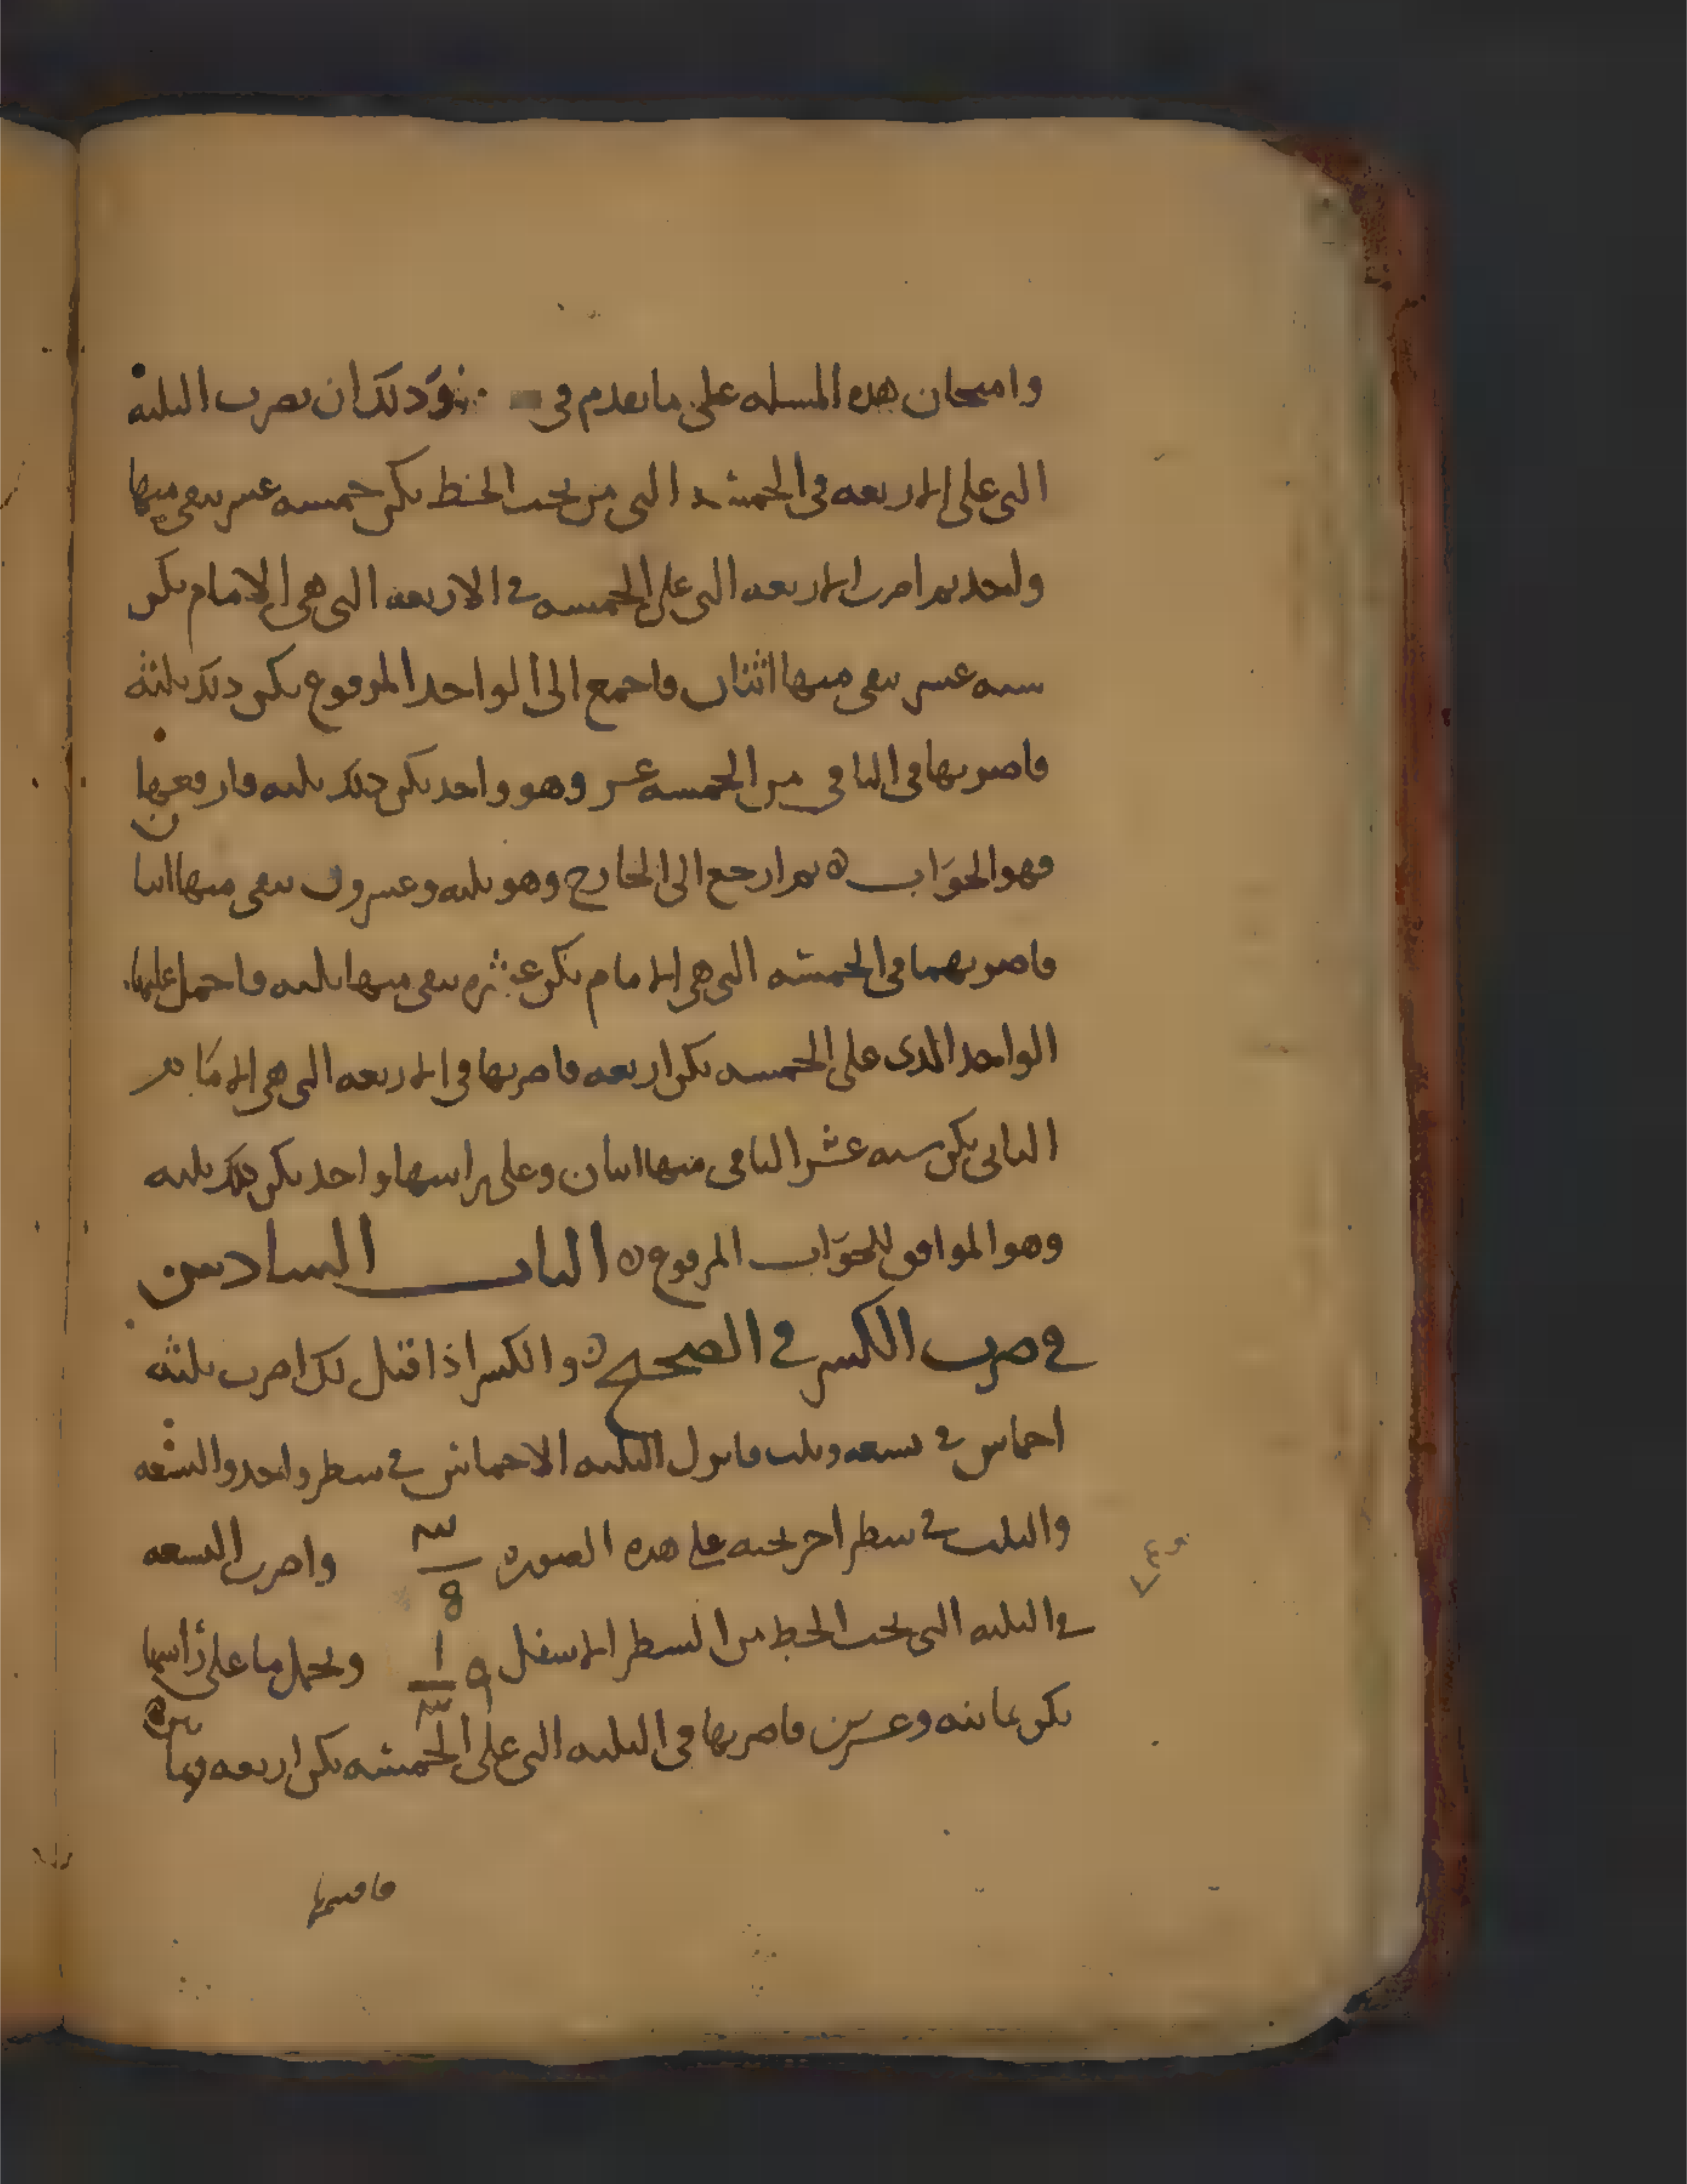 وامتحان هذه المسله على ما تقدم في وذلك ان تضرب الثلثه
التي على الاربعه في الخمسه التي من تحت الخط يكن خمسه عشر يبقى منها
واحد ثم اضرب الاربعه التي على الخمسه في الاربعه التي هي الامام يكن
سته عشر يبقى منها اثنان فاجمع الى الواحد المرفوع يكن ذلك ثلثه
فاضربها في الباقي من الخمسه عشر وهو واحد يكن ذلك ثلثه فارفعها
فهو الجواب ثم ارجع الى الخارج وهو ثلثه وعشرون يبقى منها اثنان
فاضربهما في الخمسه التي هي الامام يكن عشره يبقى منها ثلثه فاحمل عليها
الواحد الذي على الخمسه يكن اربعه فاضربها في الاربعه التي هي الامام
الثاني يكن سته عشر الباقي منها اثنان وعلى راسها واحد يكن ذلك ثلثه
وهو الموافق للجواب المرفوع الباب السادس
في ضرب الكسر في الصحيح والكسر اذا قيل لك اضرب ثلثه
اخماس في تسعه وثلث فانزل الثلثه الاخماس في سطر واحد والتسعه
والثلث في سطر اخر تحته على هذه الصوره ٣/٥ واضرب التسعه
في الثلثه التي تحت الخط من السطر الاسفل ٩ ١/٣ وتحمل ما على رأسها
يكن ثمانيه وعشرين فاضربها في الثلثه التي على الخمسه يكن اربعه وثمانين
فاقسمها